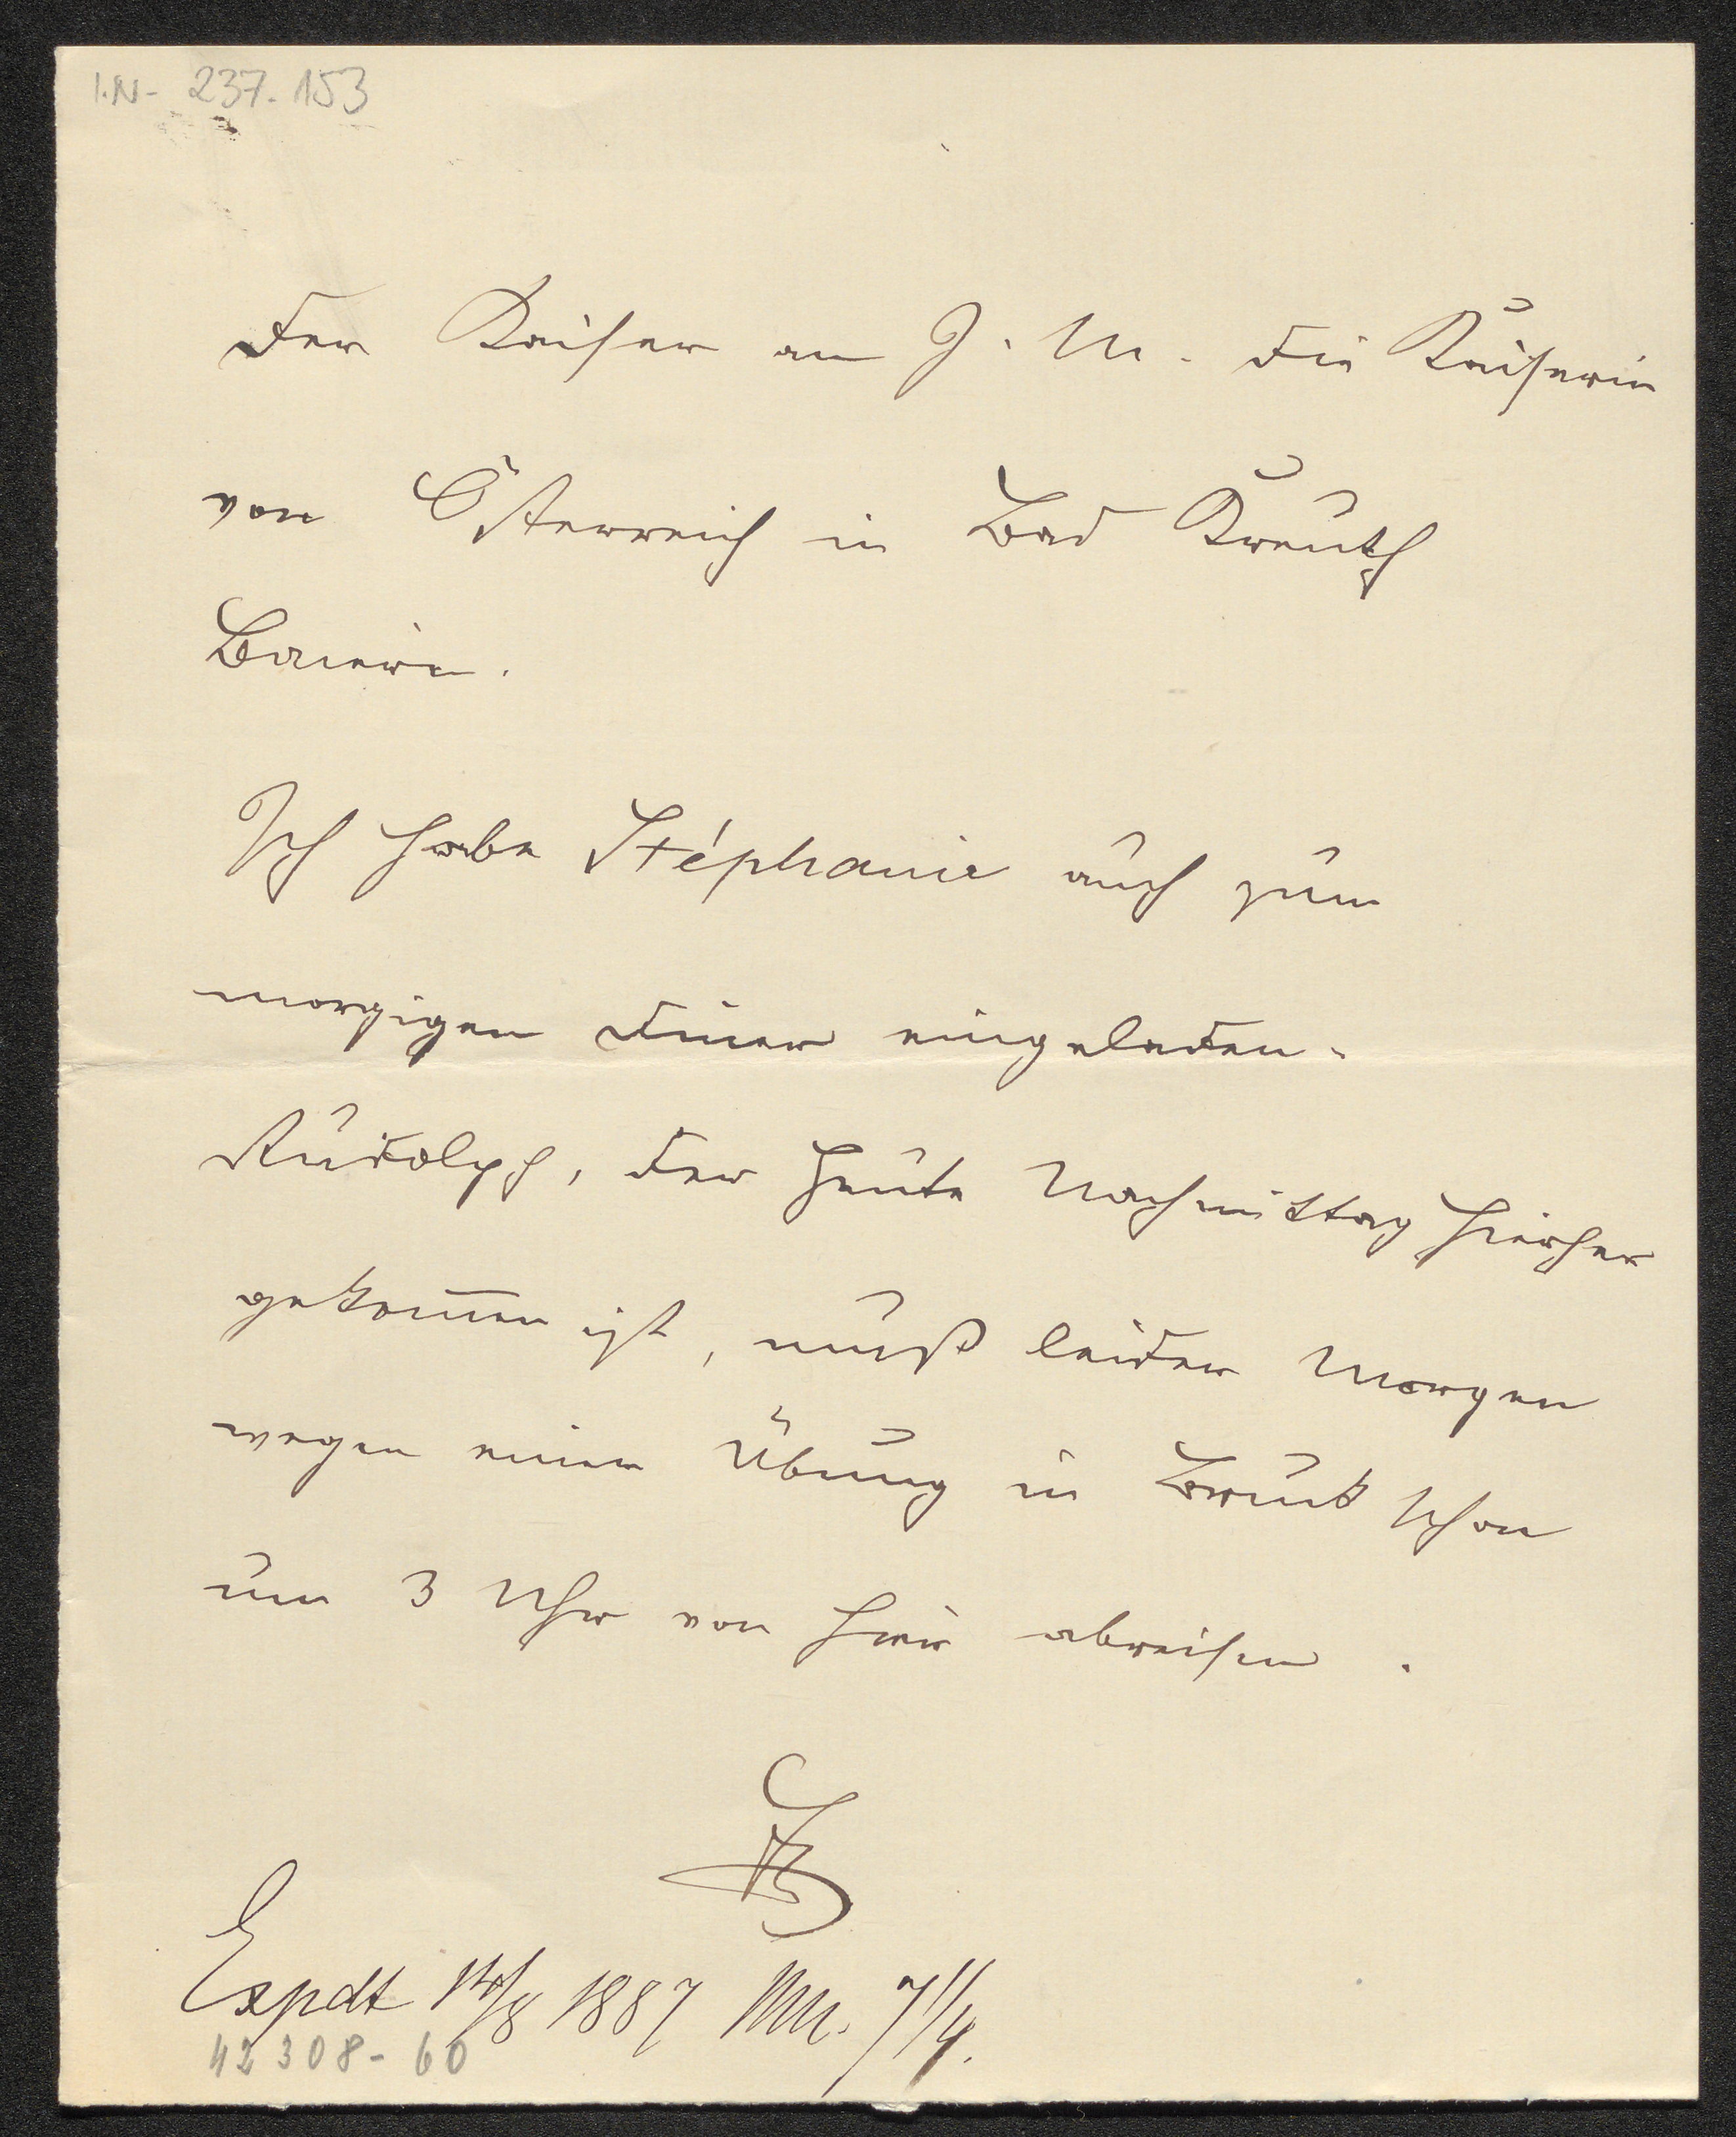 I.N- 237.153
Der Kaiser an I. M. die Kaiserin
von Österreich in Bad Kreuth
Baiern.
Ich habe Stéphanie auch zum
morgigen Diner eingeladen.
Rudolph, der heute Nachmittag hierher
gekom̅en ist, muß leider Morgen
wegen einer Übung in Bruck schon
um 3 Uhr von hier abreisen.
Expdt 14/8 1887 NM. 7 1/4.
42308-60